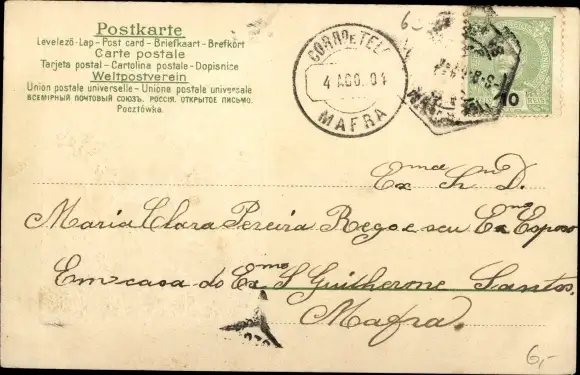 Postkarte
Levelező-Lap - Post card - Briefkaart - Brefkort
Carte postale
Tarjeta postal - Cartolina postale - Dopisnice
Weltpostverein
Union postale universelle - Unione postale universale
ВСЕМІРНЫЙ ПОЧТОВЫЙ СОЮЗЪ. РОССІЯ. ОТКРЫТОЕ ПИСЬМО.
Pocztówka.
CORRO E TELO
4 AGO. 04
MAFRA
10
6
Exma Snra D.
Maria Clara Pereira Rego e seu Exmo Esposo
Em casa do Exmo S Guilherme Santos
Mafra.
6,-